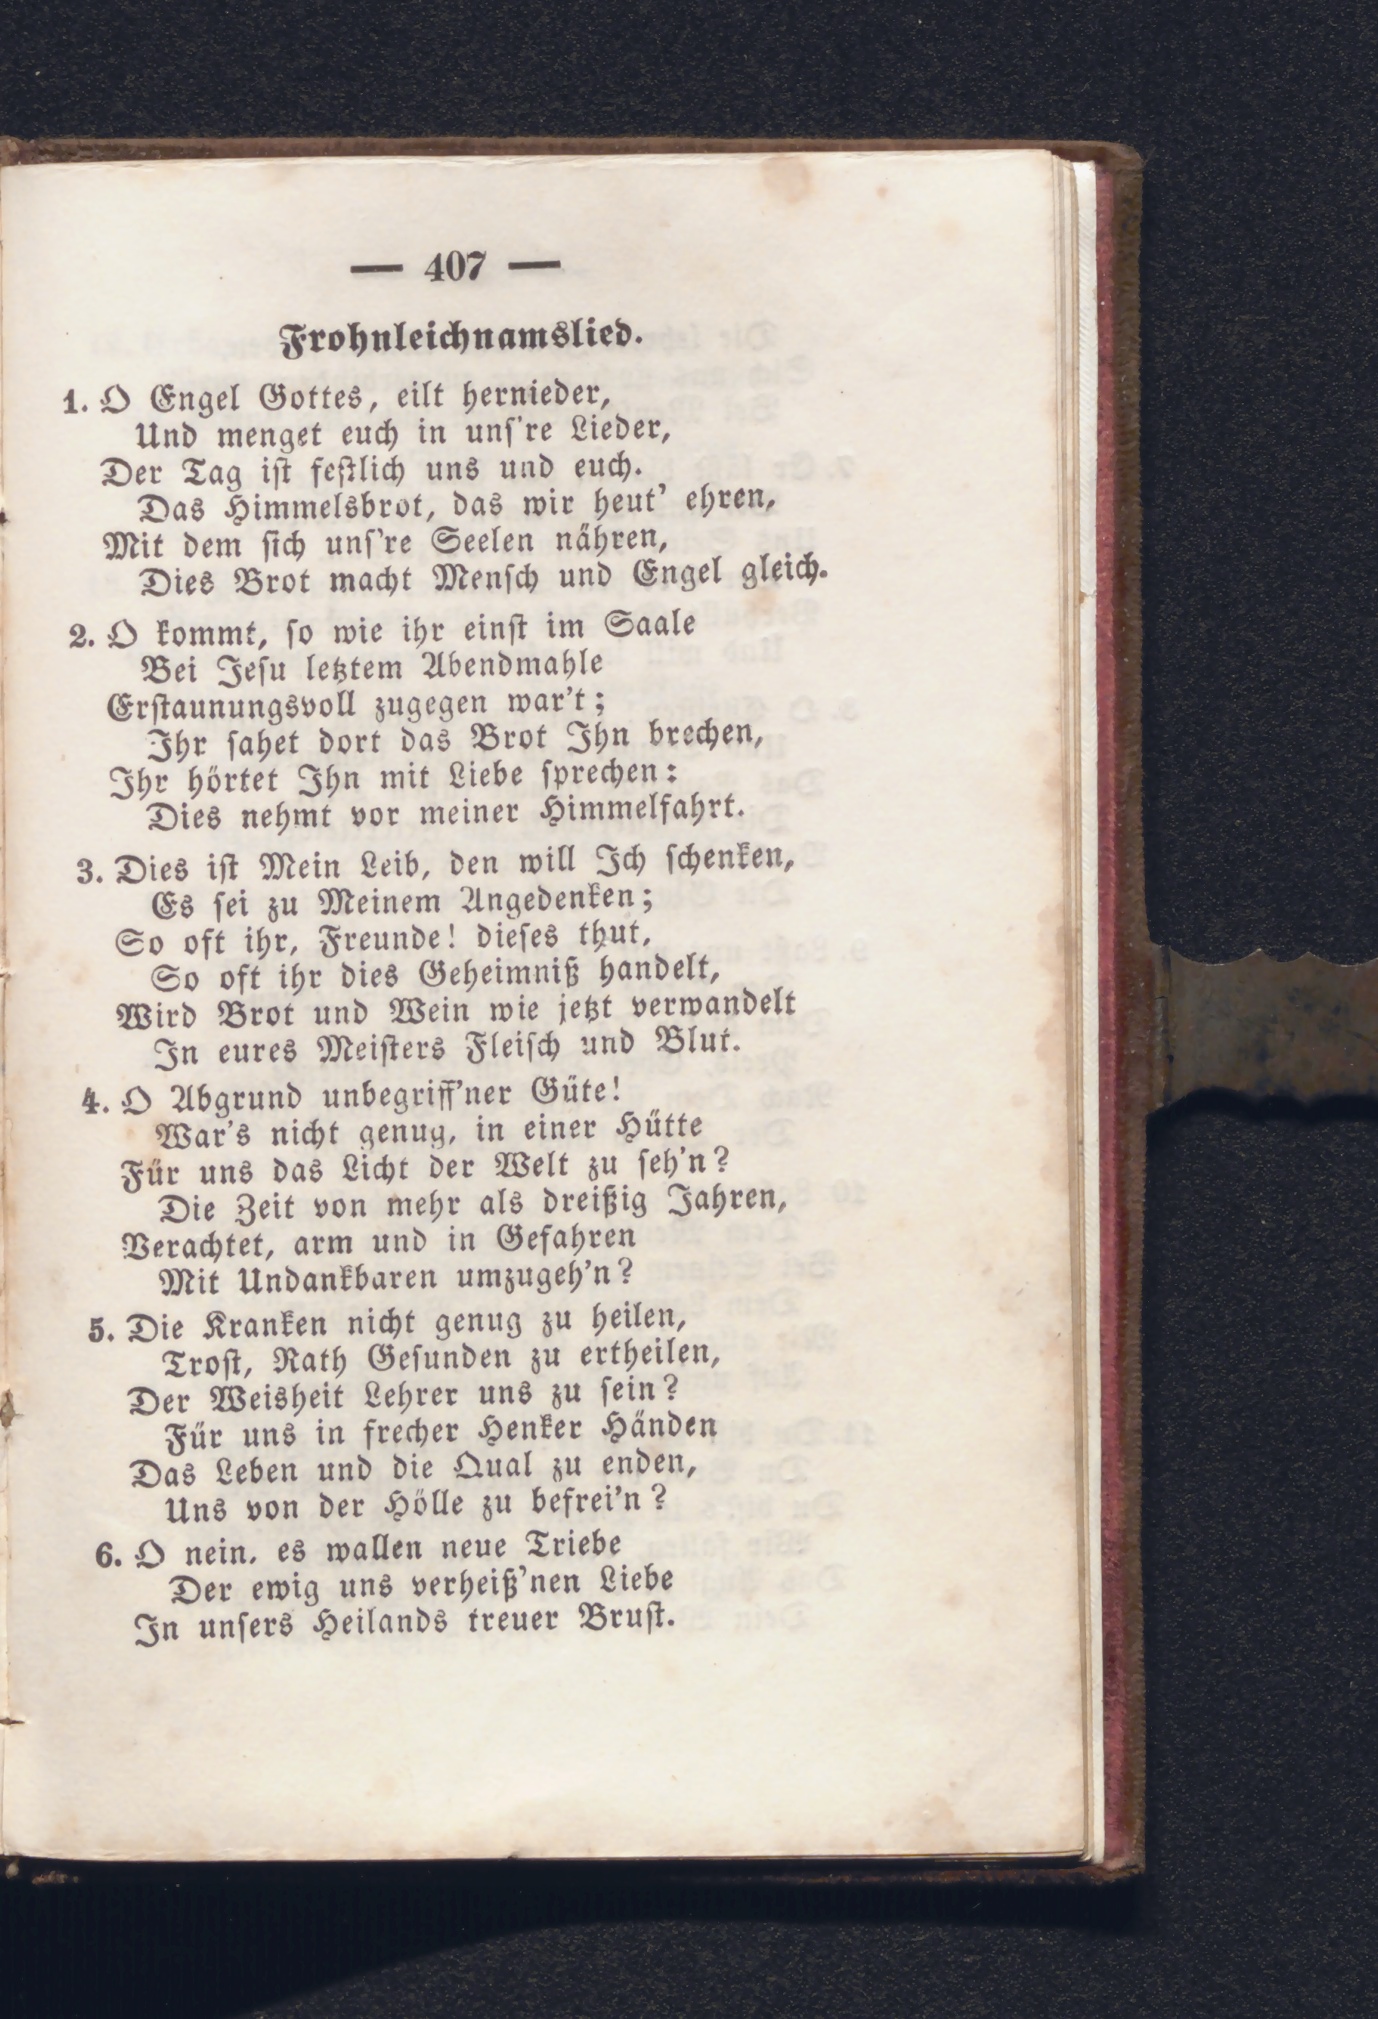 — 407 —
Frohnleichnamslied.
1. O Engel Gottes, eilt hernieder,
Und menget euch in uns're Lieder,
Der Tag ist festlich uns und euch.
Das Himmelsbrot, das wir heut' ehren,
Mit dem sich uns're Seelen nähren,
Dies Brot macht Mensch und Engel gleich.
2. O kommt, so wie ihr einst im Saale
Bei Jesu letztem Abendmahle
Erstaunungsvoll zugegen war't;
Ihr sahet dort das Brot Ihn brechen,
Ihr hörtet Ihn mit Liebe sprechen:
Dies nehmt vor meiner Himmelfahrt.
3. Dies ist Mein Leib, den will Ich schenken,
Es sei zu Meinem Angedenken;
So oft ihr, Freunde! dieses thut,
So oft ihr dies Geheimniß handelt,
Wird Brot und Wein wie jetzt verwandelt
In eures Meisters Fleisch und Blut.
4. O Abgrund unbegriff'ner Güte!
War's nicht genug, in einer Hütte
Für uns das Licht der Welt zu seh'n?
Die Zeit von mehr als dreißig Jahren,
Verachtet, arm und in Gefahren
Mit Undankbaren umzugeh'n?
5. Die Kranken nicht genug zu heilen,
Trost, Rath Gesunden zu ertheilen,
Der Weisheit Lehrer uns zu sein?
Für uns in frecher Henker Händen
Das Leben und die Qual zu enden,
Uns von der Hölle zu befrei'n?
6. O nein, es wallen neue Triebe
Der ewig uns verheiß'nen Liebe
In unsers Heilands treuer Brust.